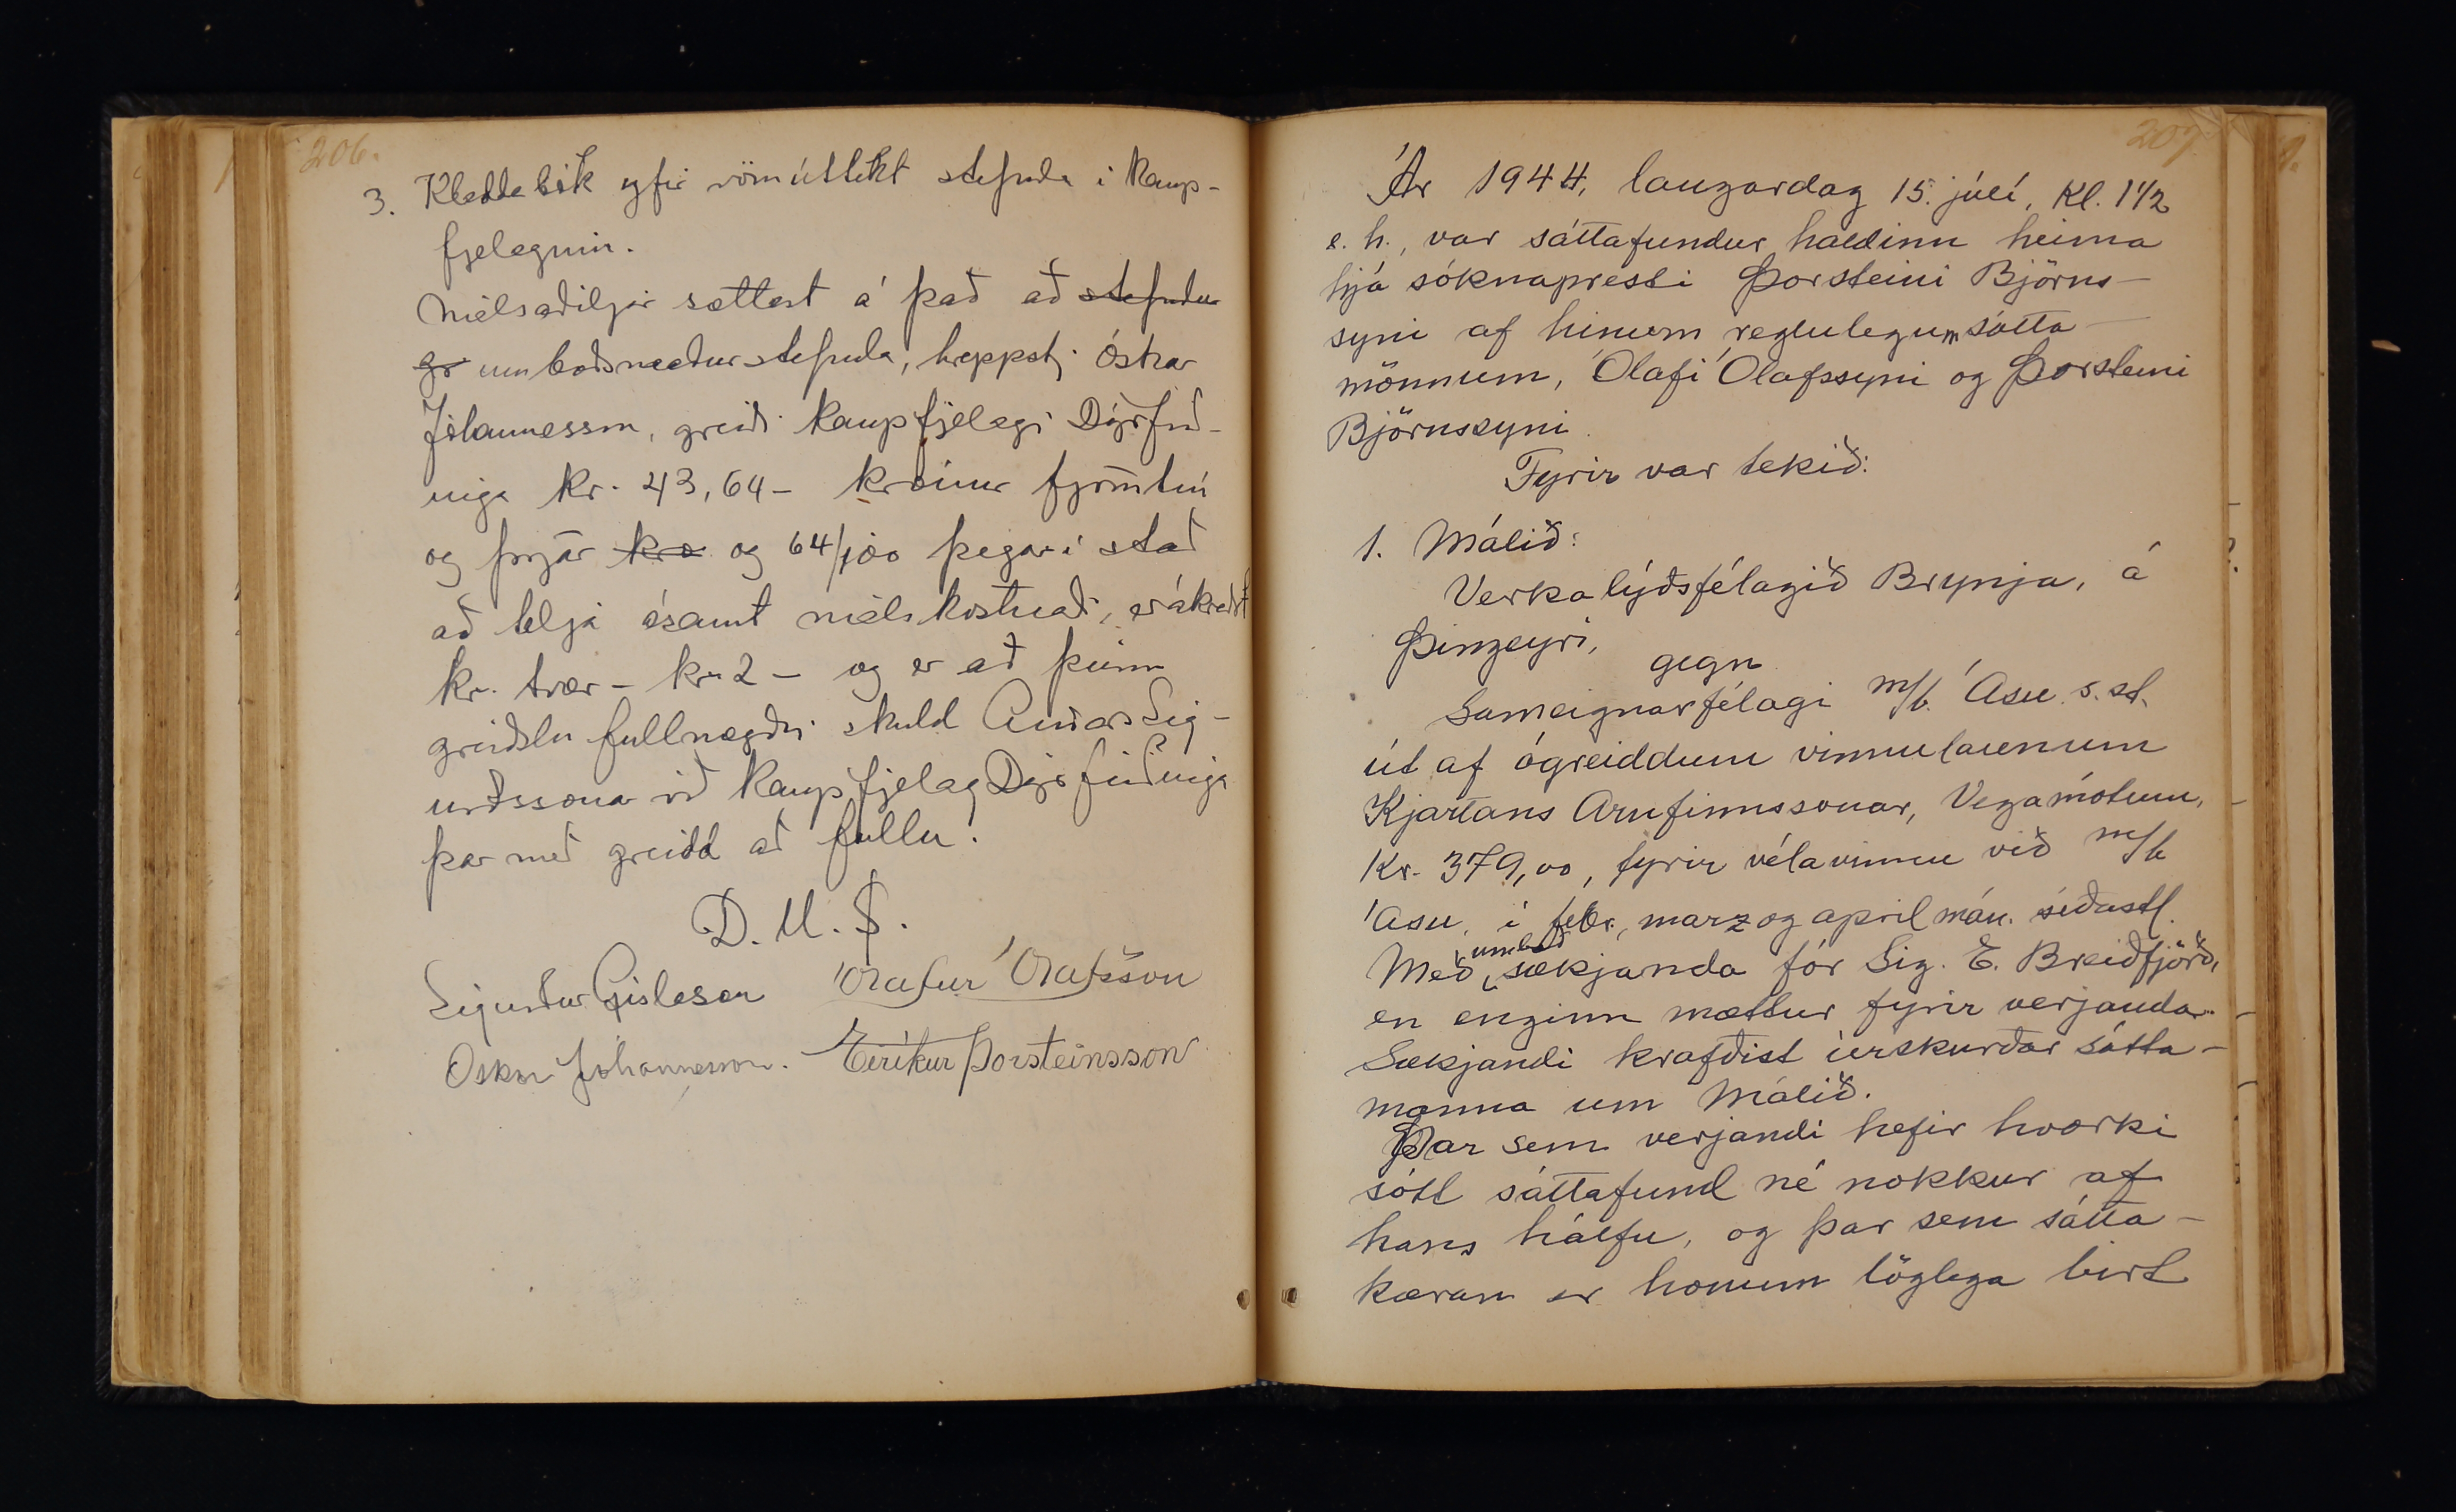 206.
3. Kladdabók yfir vöruúttekt stefnda i Kaup-
fjelaginu.
Málsaðiljar sættast á það að stefndur
gr umboðsmaður stefnda, hreppstj. Óskar
Jóhannesson, greiði Kaupfjelagi Dýrfirð-
inga Kr. 43,64 - krónur fjörutíu
og þrjár kró og 64/100 þegar í stað
að telja ásamt málskostnaði, er ákveðst
kr. tvær - kr. 2 - og er að þeirri
greiðslu fullnægðri skuld Andrésar Sig-
urðssonar við Kaupfjelag Dýrfirðinga
þar með greidd að fullu.
D. U. S.
Sigurður Gíslason Ólafur Ólafsson
Óskar Jóhannesson. Eiríkur Þorsteinsson
207.
Ár 1944, laugardag 15. júlí, Kl. 1 1/2
e. h., var sáttafundur haldinn heima
hjá sóknapresti Þorsteini Björns-
syni af hinum reglulegum sátta-
mönnum, Ólafi Ólafssyni og Þorsteini
Björnssyni.
Fyrir var tekið:
1. Málið:
Verkalýðsfélagið Brynja, á
Þingeyri,
gegn
Sameignarfélagi m/b. Ásu s. st.
út af ógreiddum vinnulaunum
Kjartans Arnfinnssonar, Vegamótum,
Kr. 379,00, fyrir vélavinnu við m/b
Ásu, í febr., marz og apríl mán. síðastl.
Með umboð sækjanda fór Sig. E. Breiðfjörð,
en enginn mættur fyrir verjanda.
Sækjandi krafðist úrskurðar sátta-
manna um málið.
Þar sem verjandi hefir hvorki
sótt sáttafund né nokkur af
hans hálfu, og þar sem sátta-
kæran er honum löglega birt